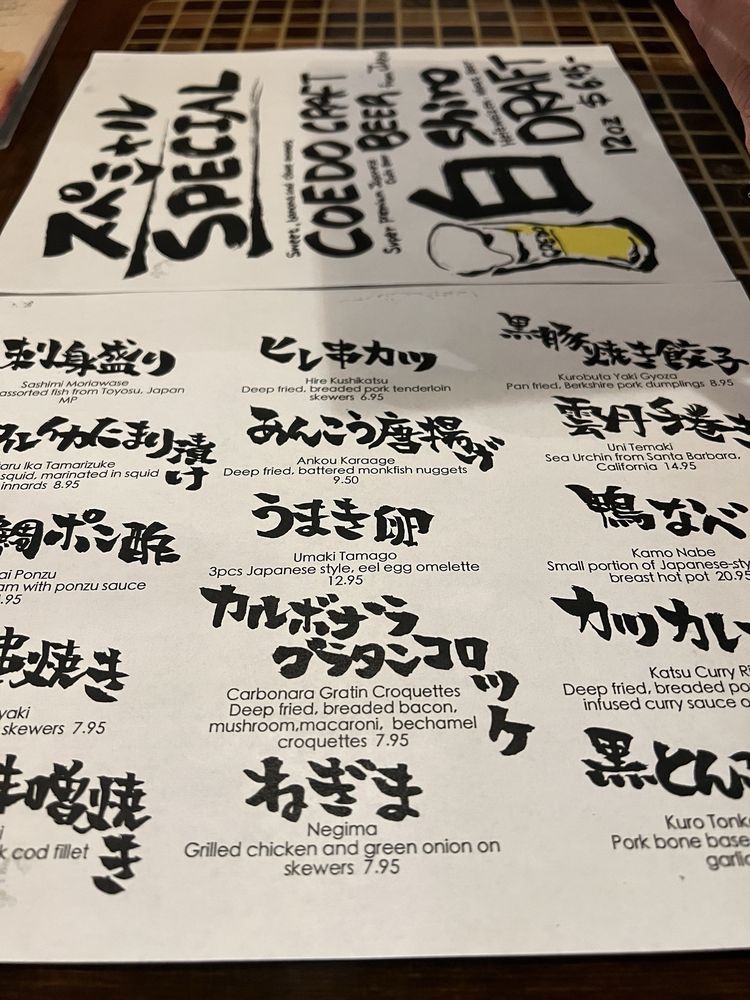 スペシャル
SPECIAL
Sweet, banana and clove aromas
COEDO CRAFT
Super premium Japanese Craft Beer
BEER from Japan
白 Shiro
DRAFT
COEDO
12oz $6.95-
刺身盛り
Sashimi Moriawase
assorted fish from Toyosu, Japan
MP
ルイカたまり漬け
aru Ika Tamarizuke
squid, marinated in squid
innards 8.95
鯛ポン酢
ai Ponzu
am with ponzu sauce
.95
串焼き
yaki
skewers 7.95
味噌焼き
k cod fillet
ヒレ串カツ
Hire Kushikatsu
Deep fried, breaded pork tenderloin
skewers 6.95
あんこう唐揚げ
Ankou Karaage
Deep fried, battered monkfish nuggets
9.50
うまき卵
Umaki Tamago
3pcs Japanese style, eel egg omelette
12.95
カルボナーラ
グラタンコロッケ
Carbonara Gratin Croquettes
Deep fried, breaded bacon,
mushroom,macaroni, bechamel
croquettes 7.95
ねぎま
Negima
Grilled chicken and green onion on
skewers 7.95
黒豚焼き餃子
Kurobuta Yaki Gyoza
Pan fried, Berkshire pork dumplings 8.95
雲丹手巻き
Uni Temaki
Sea Urchin from Santa Barbara,
California 14.95
鴨なべ
Kamo Nabe
Small portion of Japanese-sty
breast hot pot 20.95
カツカレ
Katsu Curry Ri
Deep fried, breaded po
infused curry sauce o
黒とんこ
Kuro Tonko
Pork bone base
garlic